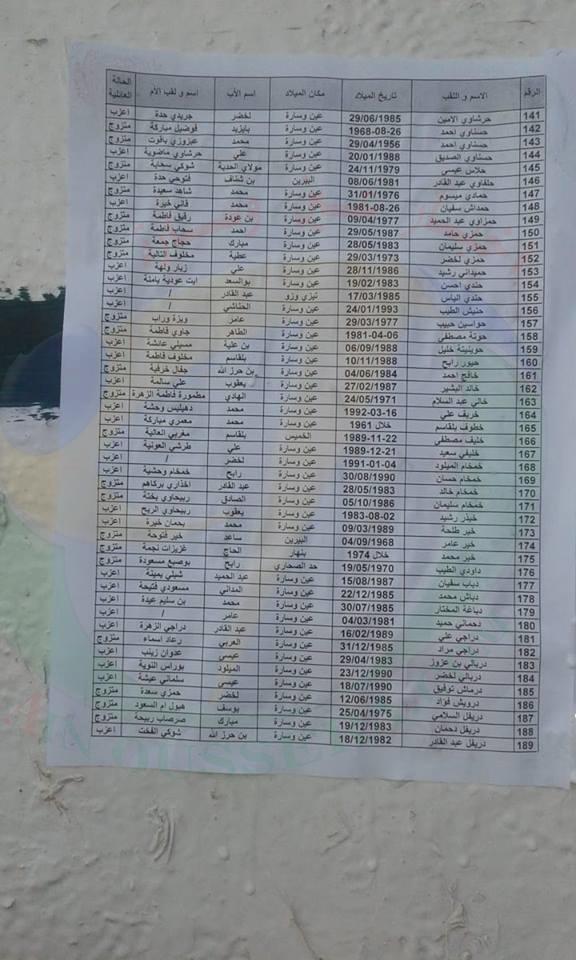 الرقم الاسم و اللقب تاريخ الميلاد مكان الميلاد اسم الأب اسم و لقب الأم الحالة العائلية
141 حرشاوي الامين 29/06/1985 عين وسارة لخضر جريدي حدة اعزب
142 حسناوي احمد 1968-08-26 عين وسارة بايزيد فوضيل مباركة متزوج
143 حسناوي احمد 29/04/1956 عين وسارة محمد عيزوزي ياقوت متزوج
144 حسناوي الصديق 20/01/1988 عين وسارة علي حرشاوي ماضوية اعزب
145 حلاس عيسى 24/11/1979 عين وسارة مولاي الحدبة شوكي سحابة متزوج
146 حلفاوي عبد القادر 08/06/1981 البيرين بن شناف فتوحي حدة اعزب
147 حمادي ميسوم 31/01/1976 عين وسارة محمد شاهد سعيدة متزوج
148 حمداش سفيان 1981-08-26 عين وسارة محمد قاني خيرة اعزب
149 حمزاوي عبد الحميد 09/04/1977 عين وسارة بن عودة رقيق فاطمة متزوج
150 حمزي حامد 29/05/1987 عين وسارة احمد سحاب فاطمة متزوج
151 حمزي سليمان 28/05/1983 عين وسارة مبارك حجاج جمعة متزوج
152 حمزي لخضر 29/03/1973 عين وسارة عطية مخلوف التالية متزوج
153 حميداني رشيد 28/11/1986 عين وسارة علي زيار ولهة اعزب
154 حندي احسن 19/02/1983 عين وسارة بوالسعد ايت عودية يامنة اعزب
155 حندي الياس 17/03/1985 تيزي وزو عبد القادر / اعزب
156 حنيش الطيب 24/01/1993 عين وسارة الخناشي / اعزب
157 حواسين حبيب 29/03/1977 عين وسارة عامر ويزة وراب متزوج
158 حوتة مصطفى 1981-04-06 عين وسارة الطاهر جاوي فاطمة متزوج
159 حويتية خليل 06/09/1988 عين وسارة بن علية مسيلي عائشة اعزب
160 حيور رابح 10/11/1988 عين وسارة بلقاسم مخلوف فاطمة اعزب
161 خافج احمد 04/06/1984 عين وسارة بن حرز الله جفال خرفية متزوج
162 خالد البشير 27/02/1987 عين وسارة يعقوب علي سالمة اعزب
163 خالي عبد السلام 24/05/1971 عين وسارة الهادي مطمورة فاطمة الزهرة متزوج
164 خريف علي 1992-03-16 عين وسارة محمد دهيليس وحشة اعزب
165 خطوف بلقاسم خلال 1961 عين وسارة محمد معمري مباركة متزوج
166 خليف مصطفى 1989-11-22 الخميس بلقاسم مغربي العالية متزوج
167 خليفي سعيد 1989-12-21 عين وسارة علي طرشي العونية اعزب
168 خمخام الميلود 1991-01-04 عين وسارة لخضر / اعزب
169 خمخام حسان 30/08/1990 عين وسارة رابح خمخام وحشية اعزب
170 خمخام خالد 28/05/1983 عين وسارة عبد القادر اخذاري بركاهم متزوج
171 خمخام سليمان 05/10/1986 عين وسارة الصادق ربيحاوي يختة متزوج
172 خيذر رشيد 1983-08-02 عين وسارة يعقوب ربيحاوي الربح اعزب
173 خير طلحة 09/03/1989 عين وسارة محمد بحمان خيرة اعزب
174 خير عامر 04/09/1968 البيرين ساعد خير فتوحة متزوج
175 خير محمد خلال 1974 بنهار الحاج غريزات نجمة متزوج
176 داودي الطيب 19/05/1970 حد الصحاري رابح بوصبع مسعودة متزوج
177 دباب سفيان 15/08/1987 عين وسارة عبد الحميد شبلي يمينة اعزب
178 دباش محمد 22/12/1985 عين وسارة المداني مسعودي فتيحة اعزب
179 دباغة المختار 30/07/1985 عين وسارة محمد بن سليم عيدة اعزب
180 دحماني حميد 04/03/1981 عين وسارة عامر / اعزب
181 دراجي علي 16/02/1989 عين وسارة عبد القادر دراجي الزهرة اعزب
182 دراجي مراد 31/12/1985 عين وسارة العربي رعاد اسماء متزوج
183 دربالي بن عزوز 29/04/1983 عين وسارة عيسى عدوان زينب اعزب
184 دربالي لخضر 23/12/1990 عين وسارة الميلود بوراس النوية اعزب
185 درماش توفيق 18/07/1990 عين وسارة عيسى سلماني عيشة اعزب
186 درويش فؤاد 12/06/1985 عين وسارة لخضر حمزي سعدة متزوج
187 دريفل السلامي 25/04/1975 عين وسارة يوسف هبول ام السعود متزوج
188 دريفل دحمان 19/12/1983 عين وسارة مبارك صرصاب ربيحة متزوج
189 دريفل عبد القادر 18/12/1982 عين وسارة بن حرز الله شوكي الفخت اعزب